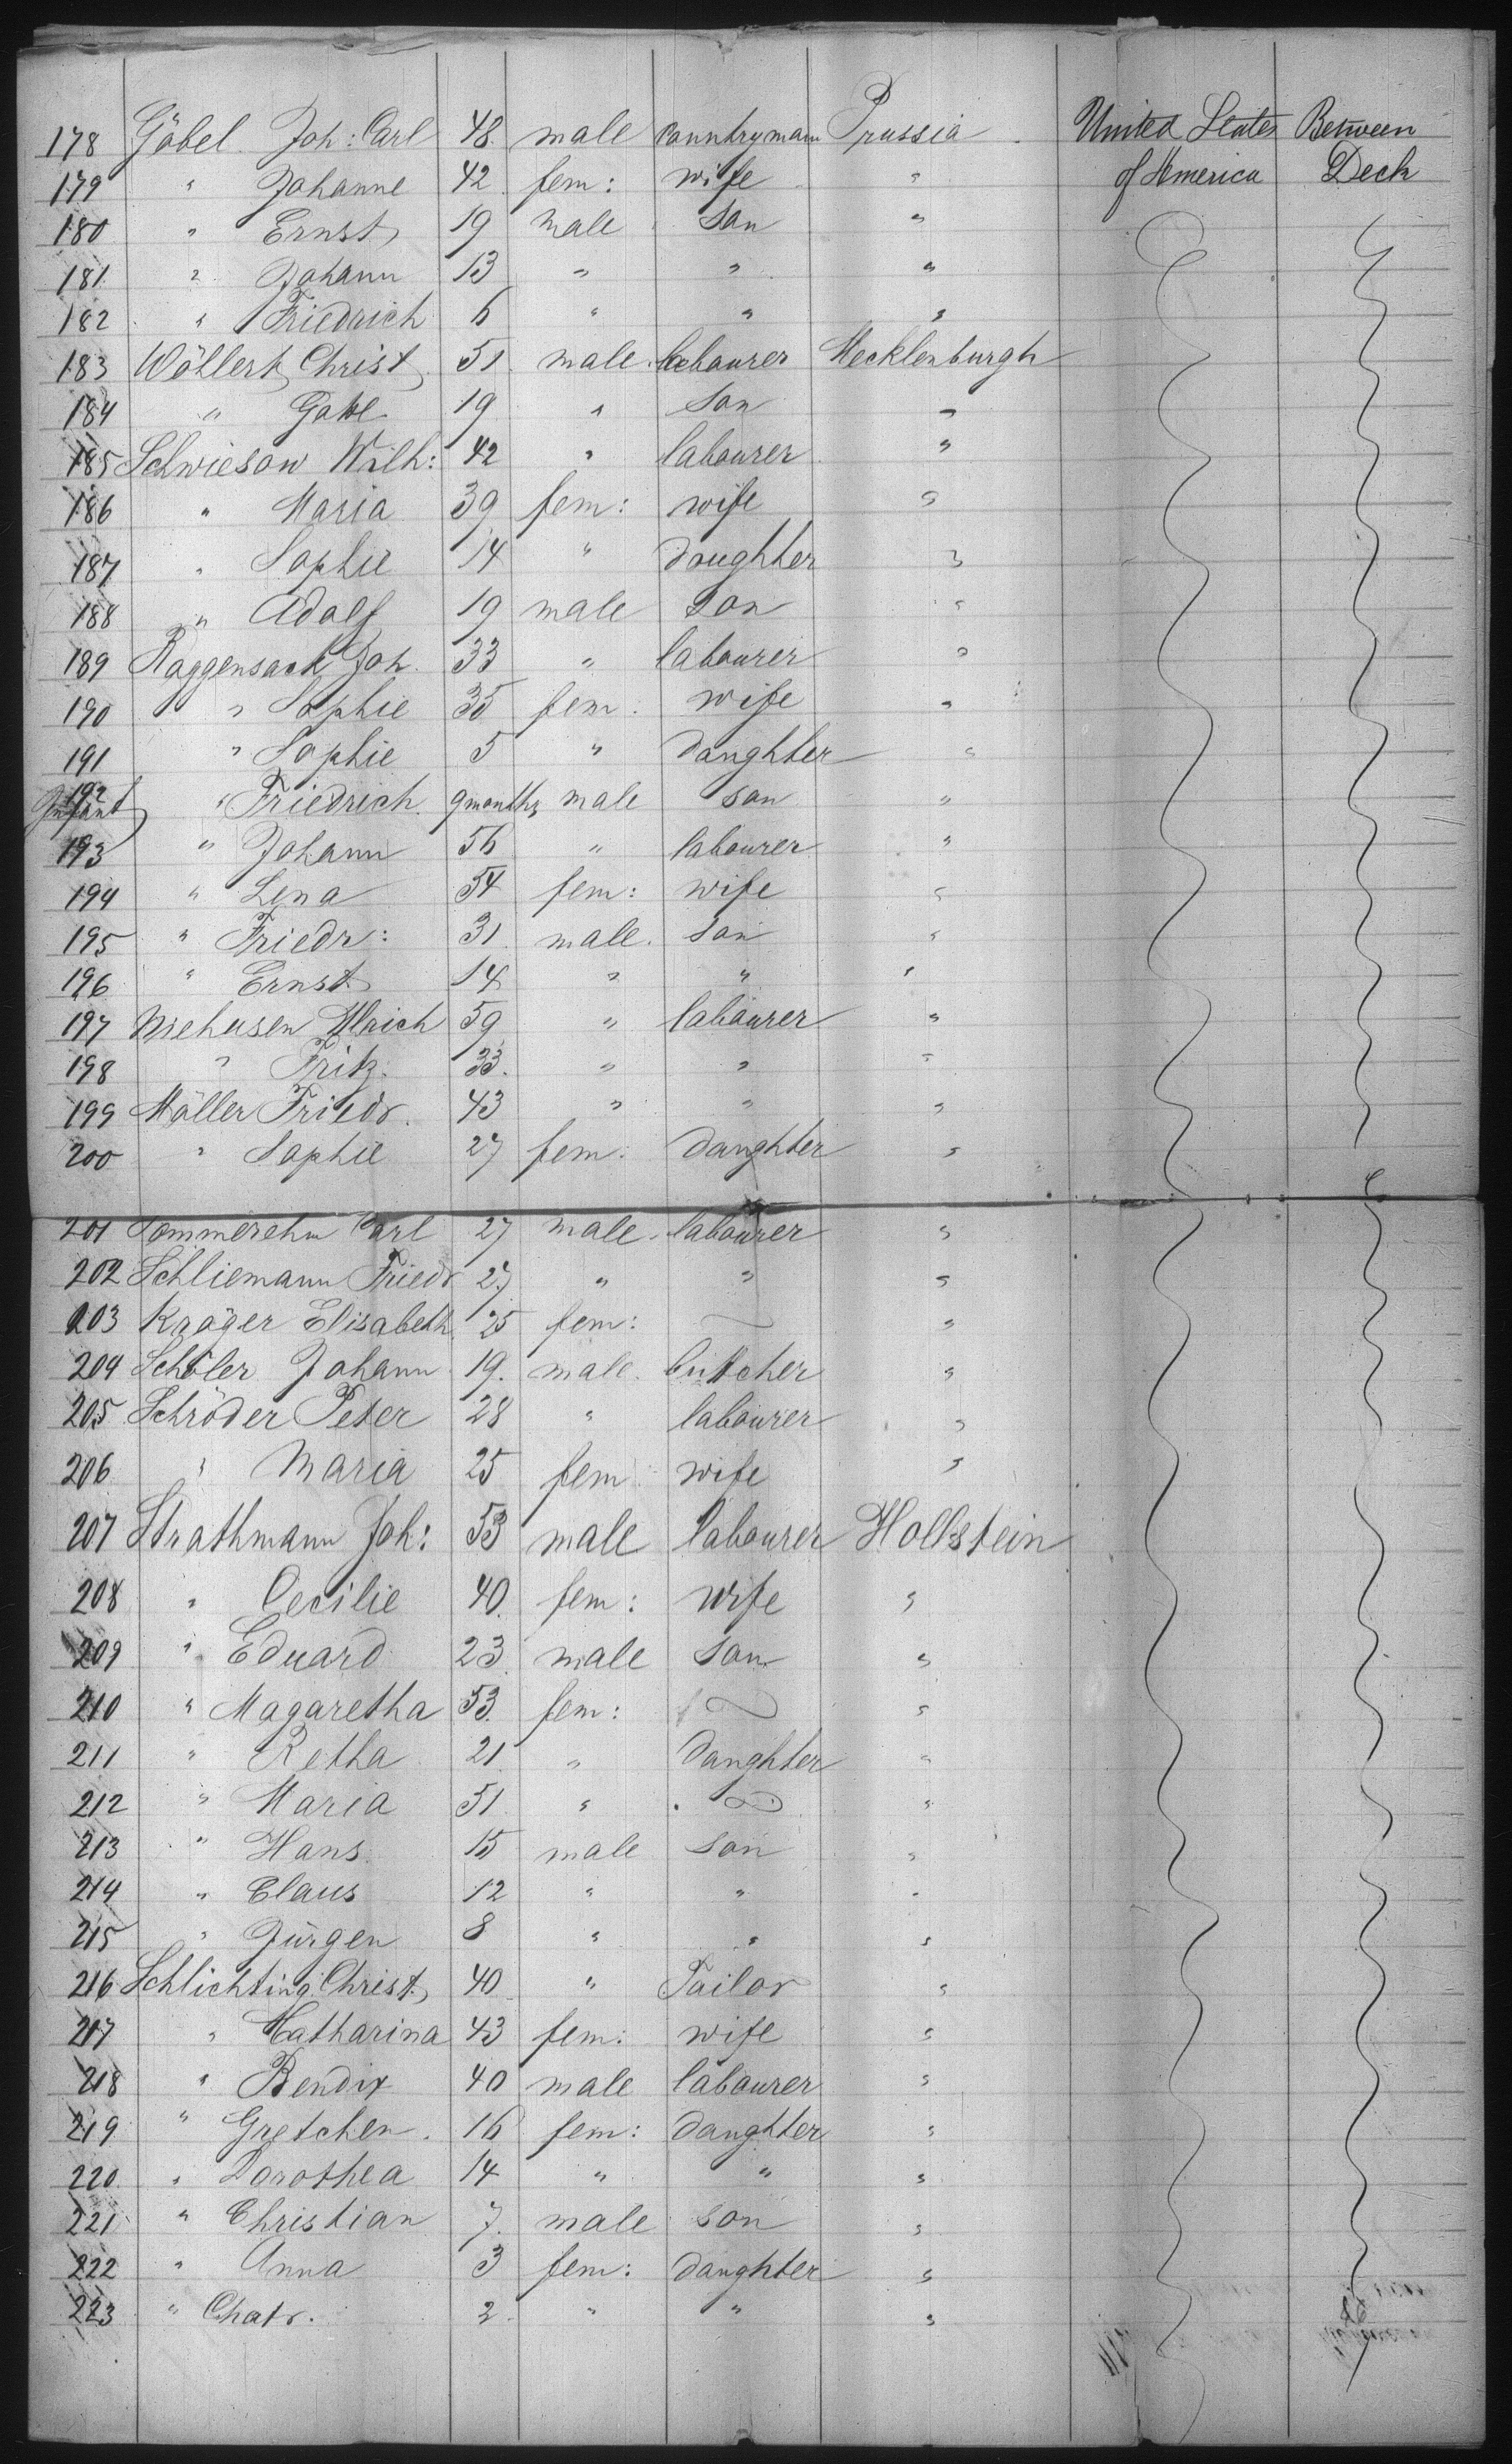 178 Göbel Joh: Carl 48. male countryman Prussia United States Between
179 " Johanne 42 fem: wife " of America Deck
180 " Ernst 19 male son "
181 " Johann 13 " " "
182 " Friedrich 6 " " "
183 Wöllert Christ. 51. male labourer Mecklenburgh
184 " 19 " son "
185 Schwiesow Wilh: 42 " labourer "
186 " Maria 39 fem: wife "
187 " Sophie 14 " doughter "
188 " Adolf 19 male son "
189 Raggensack Joh. 33 " labourer "
190 " Sophie 35 fem. wife "
191 " Sophie 5 " daughter "
192 Infant " Friedrich 9 months male son "
193 " Johann 56 " labourer "
194 " Lena 54 fem: wife "
195 " Friedr: 31 male. son "
196 " Ernst 14 " " "
197 Niehusen 59 " labourer "
198 " Fritz. 33. " " "
199 Möller Friedr. 43 " " "
200 " Sophie 27 fem: daughter "
201 Sommerehn Carl 27 male labourer "
202 Schliemann Friedr 27 " " "
203 Kröger Elisabeth 25 fem: "
204 Schöler Johann 19. male. buttcher "
205 Schröder Peter 28 " labourer "
206 " Maria 25 fem wife "
207 Strathmann Joh: 53 male labourer Hollstein
208 " Cecilie 40. fem: wife "
209 " Eduard 23 male son "
210 " Magaretha 53. fem: "
211 " Retha 21 " daughter "
212 " Maria 51 " "
213 " Hans 15 male son "
214 " Claus 12 " " "
215 " Jürgen 8 " " "
216 Schlichting Christ. 40 " Tailor "
217 " Catharina 43 fem: wife "
218 " Bendix 40 male labourer "
219 " Gretchen. 16 fem: daughter "
220 " Dorothea 14 " " "
221 " Christian 7. male son "
222 " Anna 3 fem: daughter "
223 " 2. " " "